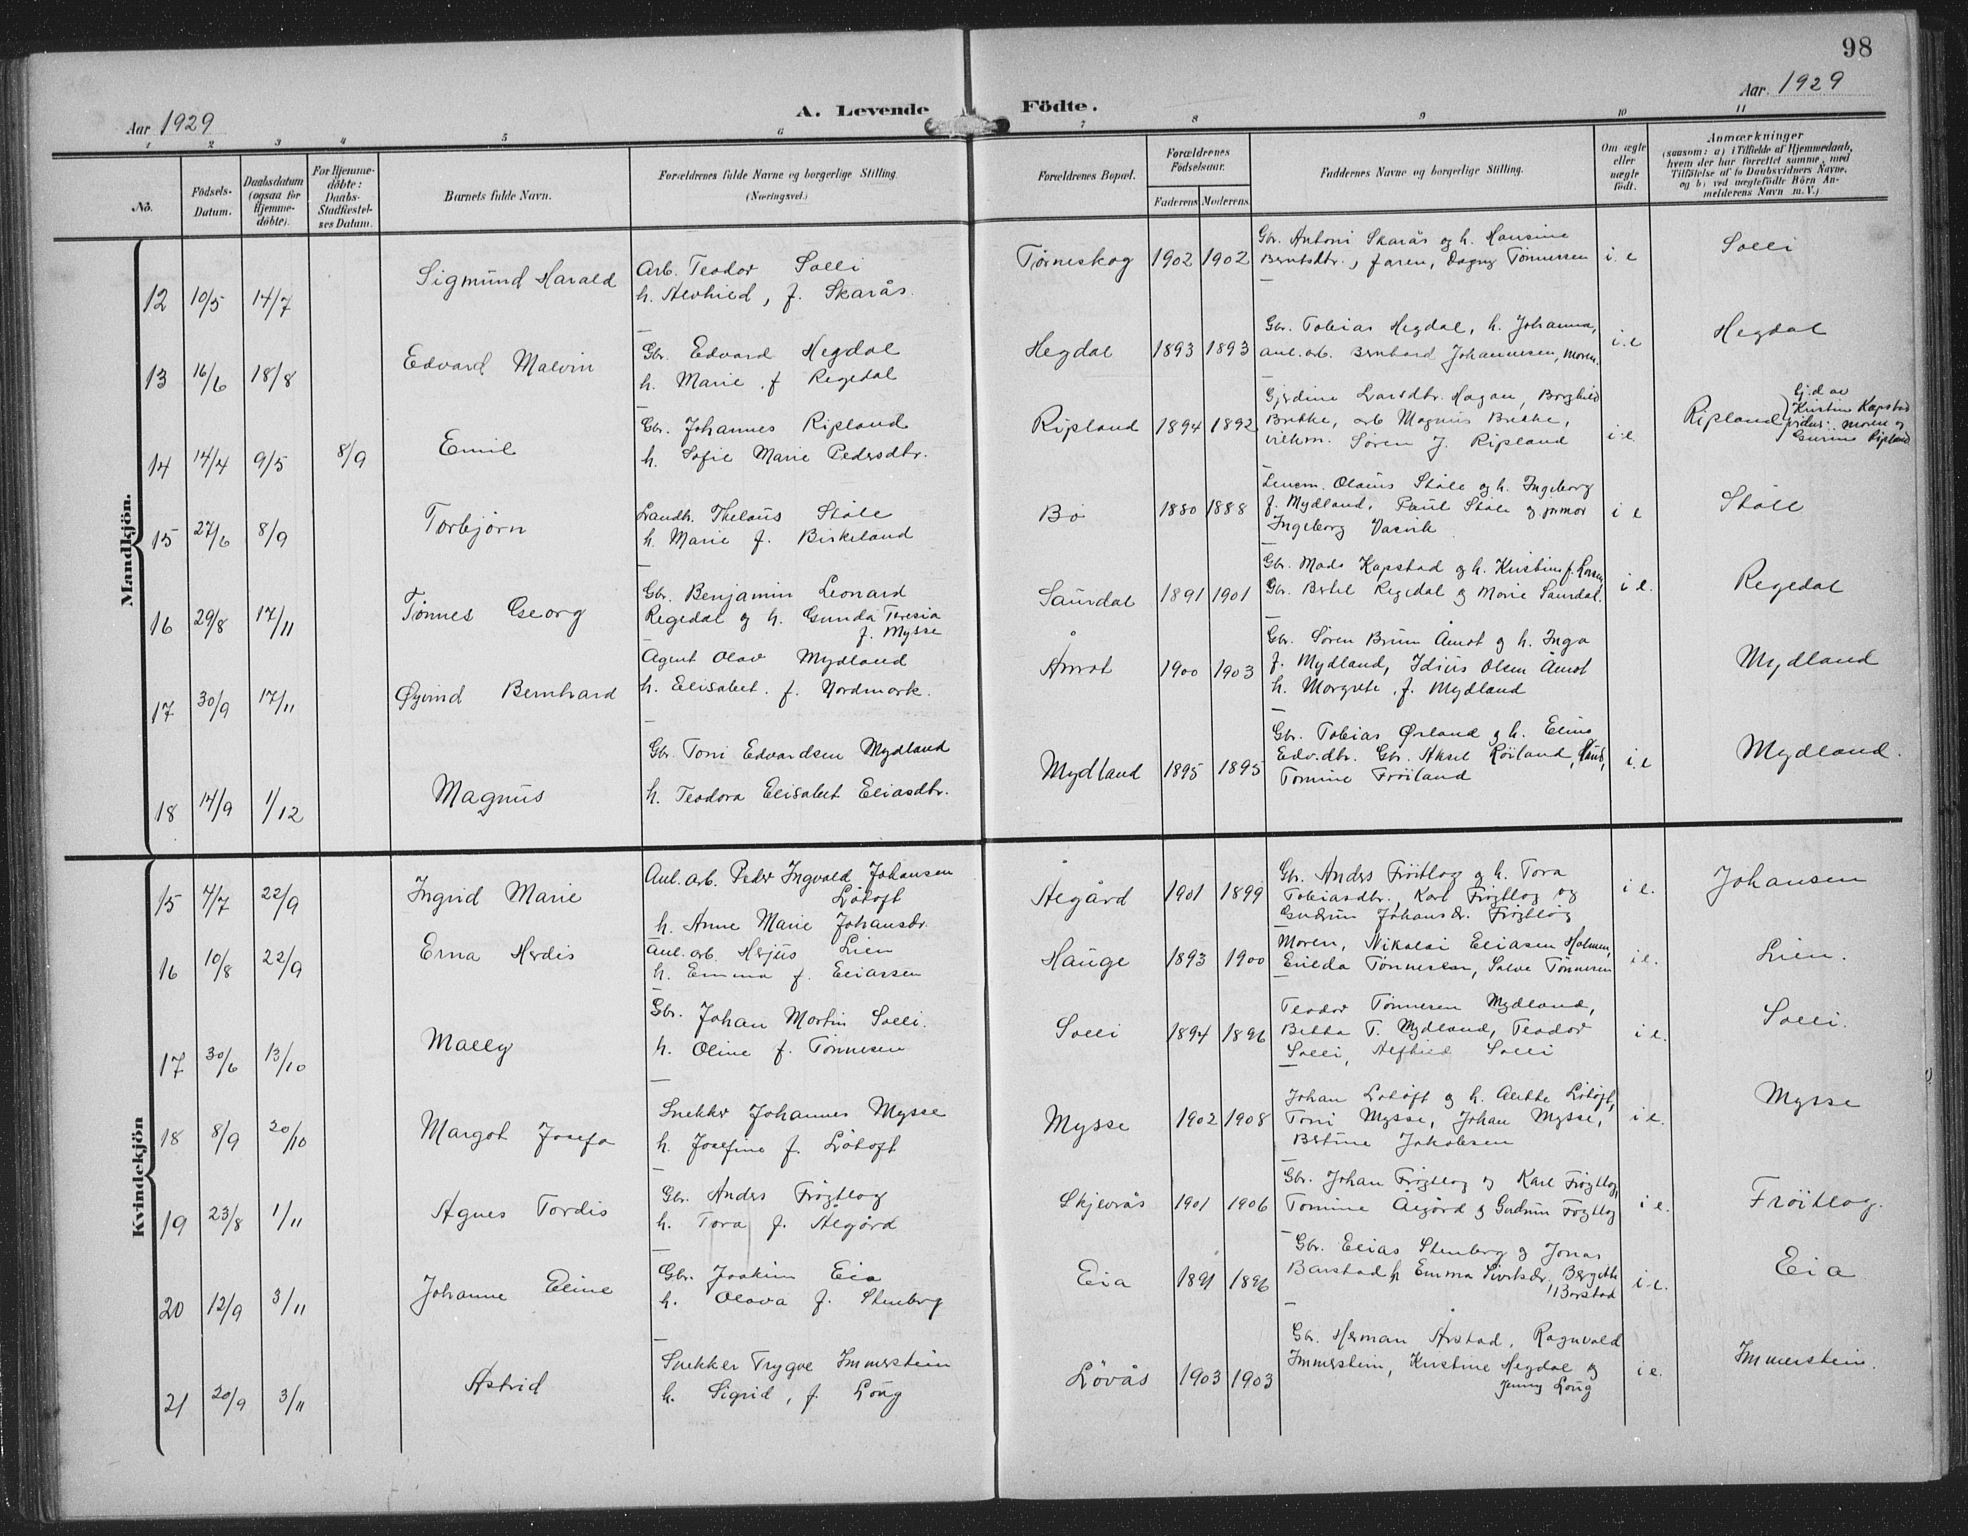 98
Aar 1929
A. Levende Födte.
Aar 1929
1 2 3 4 5 6 7 8 9 10 11
No.
Födsels-
Datum.
Daabsdatum
(ogsaa for
Hjemme-
døbte).
For Hjemme-
døbte:
Daabs-
Stadfæstel-
ses Datum.
Barnets fulde Navn.
Forældrenes fulde Navne og borgerlige Stilling.
(Næringsvei.)
Forældrenes Bopæl.
Forældrenes
Födselsaar.
Faderens Moderens
Faddernes Navne og borgerlige Stilling.
Om ægte
eller
uægte
født.
Anmærkninger
(saasom: a) i Tilfælde af Hjemmedaab,
hvem der har forrettet samme, med
Tilføielse af to Daabsvidners Navne,
og b) ved uægtefödte Börn An-
melderens Navn m. V.)
Mandkjön.
12 10/5 14/7 Sigmund Harald
Arb. Teodor Solli
h. Alvhild, f. Skarås.
Tørneskog 1902 1902
Gbr. Antoni Skarås og h. Hansine
Berntsdtr., faren, Dagny Tønnessen
i. e Solli
13 16/6 18/8 Edvard Malvin
Gbr. Edvard Hegdal
h. Marie f. Regedal
Hegdal 1893 1893
Gbr. Tobias Hegdal, h. Johanna,
anl.arb. Bernhard Johannesen, moren.
i. e Hegdal
14 14/4 9/5 8/9 Emil
Gbr. Johannes Ripland
h. Sofie Marie Pedersdtr.
Ripland 1894 1892
Gjerdine Larsdtr. Hagan, Borghild
Brekke, arb Magnus Brekke,
ungkm. Søren J. Ripland
i. e. Ripland
hj.d av
Kristine Kapstad
vidner: moren og
Gurine Ripland
15 27/6 8/9 Torbjørn
Landh. Thelaus Støle
h. Marie f. Birkeland
Bø 1880 1888
Lensm. Olaus Støle og h. Ingeborg
f. Mydland, Paul Støle og farmor
Ingeborg Vasvik
i e Støle
16 29/8 17/11 Tønnes Georg
Gbr. Benjamin Leonard
Regedal og h. Gunda Teresia
f. Mysse
Saurdal 1891 1901
Gbr. Mads Kapstad og h. Kristine f. Larsen,
Gbr. Bertel Regedal og Marie Saurdal.
i e. Regedal
17 30/9 17/11 Øyvind Bernhard
Agent Olav Mydland
h. Elisabet. f. Nordmark.
Åmot 1900 1903
Gbr. Søren Bruun Åmot og h. Inga
f. Mydland, Idius Olsen Åmot
h. Margrete, f. Mydland
Mydland
18 14/9 1/12 Magnus
Gbr. Toni Edvardsen Mydland
h. Teodora Elisabet Eliasdtr.
Mydland 1895 1895
Gbr. Tobias Ørsland og h. Eline
Edv.dtr. Gbr. Aksel Røiland,
Tomine Frøiland
i. e Mydland.
Kvindekjön
15 4/7 22/9 Ingrid Marie
Anl. arb. Peder Ingvald Johansen
Løtoft
h. Anne Marie Johansdr.
Ålgård 1901 1899
Gbr. Anders Frøitlog og h. Tora
Tobiasdtr., Karl Frøytlog og
Gudrun Johansdr. Frøytlog
i e. Johansen
16 10/8 22/9 Erna Herdis
Anl. arb. Herjus Lien
h. Emma f. Eliassen
Hauge 1893 1900
Moren, Nikolai Eliasen Holmen,
Enilda Tønnesen, Salve Tønnesen
i e. Lien.
17 30/6 13/10 Mally
Gbr. Johan Martin Solli.
h. Oline f. Tønnesen
Solli 1894 1896
Teodor Tønnesen Mydland,
Betta T. Mydland, Teodor
Solli, Alfhild Solli
i e. Solli.
18 8/9 20/10 Margot Josefa
Snekker Johannes Mysse
h. Josefine f. Løtoft
Mysse 1902 1908
Johan Løtoft og h. Alette Løtoft,
Toni Mysse, Johan Mysse,
Bertine Jakobsen
i e. Mysse
19 23/8 1/11 Agnes Tordis
Gbr. Anders Frøytlog
h. Tora f. Ålgård
Skjevrås 1901 1906
Gbr. Johan Frøytlog og Karl Frøytlog,
Tomine Ålgård og Gudrun Frøytlog
i e. Frøitlog.
20 12/9 3/11 Johanne Eline
Gbr. Joakim Eia
h. Olava f. Stenberg
Eia 1891 1896
Gbr. Elias Stenberg og Jonas
Barstad h Emma Sivertsdr, Bergitte
Barstad
i e. Eia
21 20/9 3/11 Astrid
Snekker Trygve Immerstein
h. Sigrid, f. Loug
Løvås 1903 1903
Gbr. Herman Årstad, Ragnvald
Immerstein, Kristine Hegdal og
Jenny Loug
i e. Immerstein.